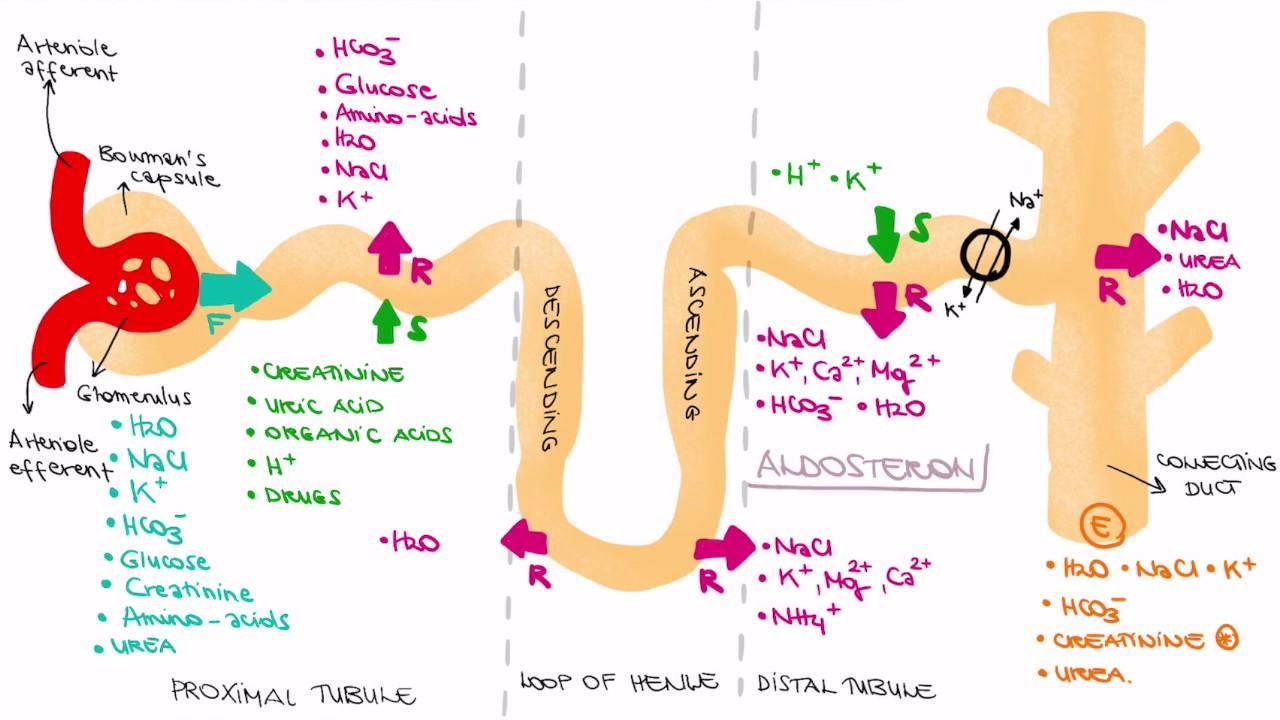 Arteriole
afferent
Bowman's
capsule
F
Glomerulus
Arteriole
efferent
• H2O
• NaCl
• K+
• HCO3-
• Glucose
• Creatinine
• Amino-acids
• UREA
• HCO3-
• Glucose
• Amino-acids
• H2O
• NaCl
• K+
R
S
• CREATININE
• URIC ACID
• ORGANIC ACIDS
• H+
• DRUGS
PROXIMAL TUBULE
DESCENDING
ASCENDING
• H2O
R
R
• NaCl
• K+, Mg2+, Ca2+
• NH4+
LOOP OF HENLE
• H+ • K+
S
R
• NaCl
• K+, Ca2+, Mg2+
• HCO3- • H2O
ALDOSTERON
Na+
K+
DISTAL TUBULE
R
• NaCl
• UREA
• H2O
COLLECTING
DUCT
E
• H2O • NaCl • K+
• HCO3-
• CREATININE *
• UREA.